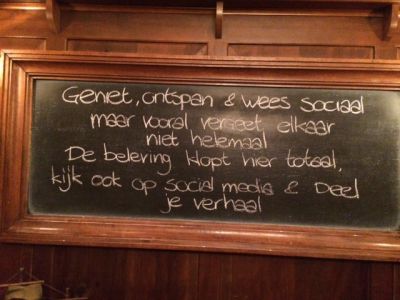 Geniet, ontspan & wees sociaal
maar vooral vergeet elkaar
niet helemaal
De beleving klopt hier totaal,
kijk ook op social media & Deel
je verhaal